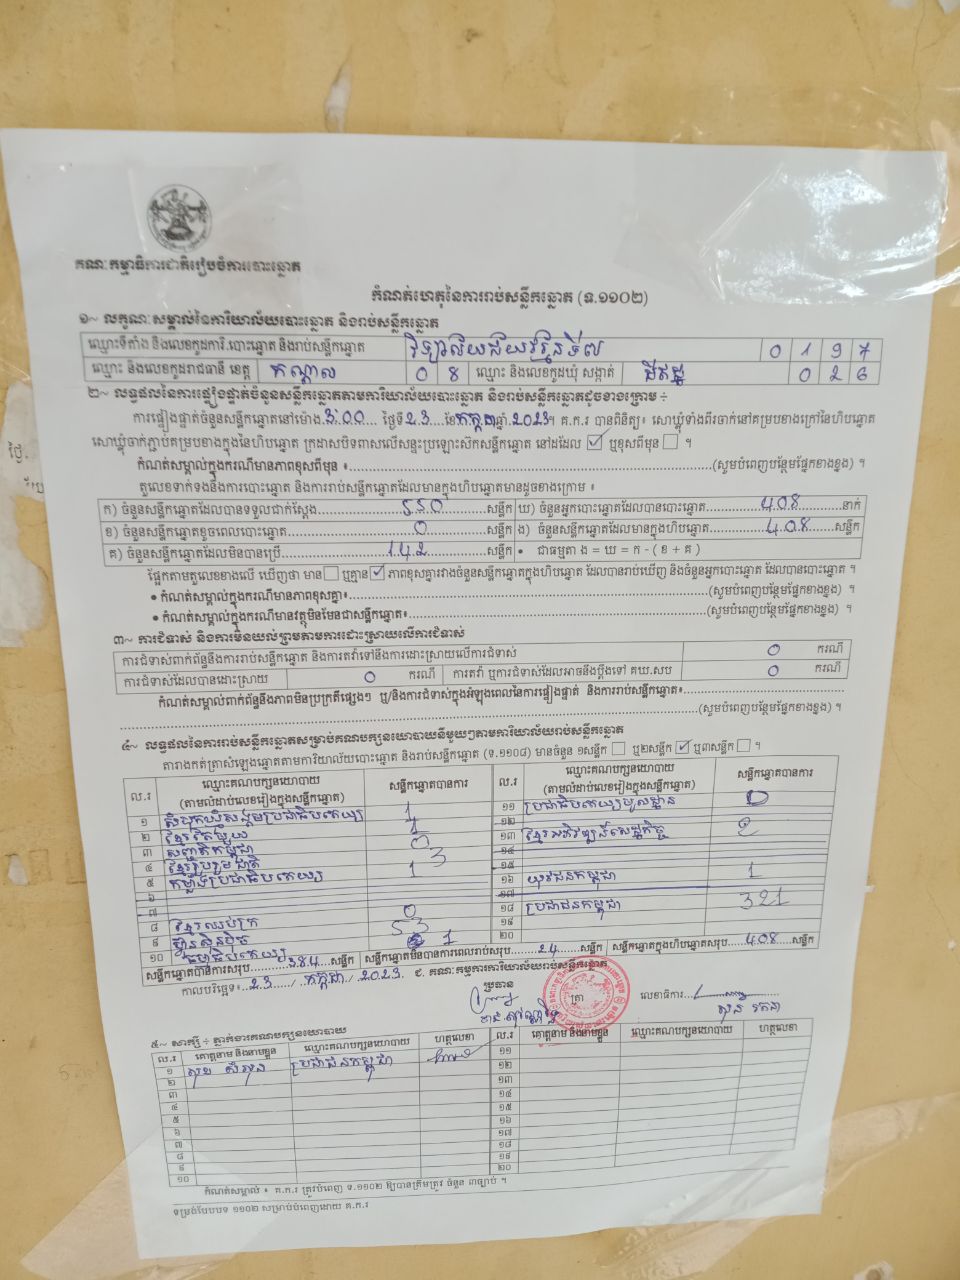 គណៈកម្មាធិការជាតិរៀបចំការបោះឆ្នោត
កំណត់ហេតុនៃការរាប់សន្លឹកឆ្នោត (ទ.១១០២)
១~ លក្ខណៈសម្គាល់នៃការិយាល័យបោះឆ្នោត និងរាប់សន្លឹកឆ្នោត
ឈ្មោះទីតាំង និងលេខកូដការិ.បោះឆ្នោត និងរាប់សន្លឹកឆ្នោត វិទ្យាល័យជ័យវរ្ម័នទី៧ 0 1 9 7
ឈ្មោះ និងលេខកូដរាជធានី ខេត្ត កណ្តាល 0 8 ឈ្មោះ និងលេខកូដឃុំ សង្កាត់ 0 2 6
២~ លទ្ធផលនៃការផ្ទៀងផ្ទាត់ចំនួនសន្លឹកឆ្នោតតាមការិយាល័យបោះឆ្នោត និងរាប់សន្លឹកឆ្នោតដូចខាងក្រោម ÷
ការផ្ទៀងផ្ទាត់ចំនួនសន្លឹកឆ្នោតនៅម៉ោង 3:00 ថ្ងៃទី 23 ខែ កក្កដា ឆ្នាំ 2023។ គ.ក.រ បានពិនិត្យ៖ សោឃ្លុំទាំងពីរចាក់នៅគម្របខាងក្រៅនៃហិបឆ្នោត
សោឃ្លុំចាក់ភ្ជាប់គម្របខាងក្នុងនៃហិបឆ្នោត ក្រដាសបិទពាសលើសន្ទះប្រឡោះស៊កសន្លឹកឆ្នោត នៅដដែល ☑ ឬខុសពីមុន ☐ ។
កំណត់សម្គាល់ក្នុងករណីមានភាពខុសពីមុន ៖ (សូមបំពេញបន្ថែមផ្នែកខាងខ្នង) ។
តួលេខទាក់ទងនឹងការបោះឆ្នោត និងការរាប់សន្លឹកឆ្នោតដែលមានក្នុងហិបឆ្នោតមានដូចខាងក្រោម ៖
ក) ចំនួនសន្លឹកឆ្នោតដែលបានទទួលជាក់ស្តែង 550 សន្លឹក ឃ) ចំនួនអ្នកបោះឆ្នោតដែលបានបោះឆ្នោត 408 នាក់
ខ) ចំនួនសន្លឹកឆ្នោតខូចពេលបោះឆ្នោត 0 សន្លឹក ង) ចំនួនសន្លឹកឆ្នោតដែលមានក្នុងហិបឆ្នោត 408 សន្លឹក
គ) ចំនួនសន្លឹកឆ្នោតដែលមិនបានប្រើ 142 សន្លឹក • ជាធម្មតា ង = ឃ = ក - ( ខ + គ )
ផ្អែកតាមតួលេខខាងលើ ឃើញថា មាន ☐ ឬគ្មាន ☑ ភាពខុសគ្នារវាងចំនួនសន្លឹកឆ្នោតក្នុងហិបឆ្នោត ដែលបានរាប់ឃើញ និងចំនួនអ្នកបោះឆ្នោត ដែលបានបោះឆ្នោត ។
• កំណត់សម្គាល់ក្នុងករណីមានភាពខុសគ្នា៖ (សូមបំពេញបន្ថែមផ្នែកខាងខ្នង) ។
• កំណត់សម្គាល់ក្នុងករណីមានវត្ថុមិនមែនជាសន្លឹកឆ្នោត៖ (សូមបំពេញបន្ថែមផ្នែកខាងខ្នង) ។
៣~ ការជំទាស់ និងការមិនយល់ព្រមតាមការដោះស្រាយលើការជំទាស់
ការជំទាស់ពាក់ព័ន្ធនឹងការរាប់សន្លឹកឆ្នោត និងការតវ៉ាទៅនឹងការដោះស្រាយលើការជំទាស់ 0 ករណី
ការជំទាស់ដែលបានដោះស្រាយ 0 ករណី ការតវ៉ា ឬការជំទាស់ដែលអាចនឹងប្តឹងទៅ គឃ.សប 0 ករណី
កំណត់សម្គាល់ពាក់ព័ន្ធនឹងភាពមិនប្រក្រតីផ្សេងៗ ឬ/និងការជំទាស់ក្នុងអំឡុងពេលនៃការផ្ទៀងផ្ទាត់ និងការរាប់សន្លឹកឆ្នោត៖
(សូមបំពេញបន្ថែមផ្នែកខាងខ្នង) ។
៤~ លទ្ធផលនៃការរាប់សន្លឹកឆ្នោតសម្រាប់គណបក្សនយោបាយនីមួយៗតាមការិយាល័យរាប់សន្លឹកឆ្នោត
តារាងកត់ត្រាសំឡេងឆ្នោតតាមការិយាល័យបោះឆ្នោត និងរាប់សន្លឹកឆ្នោត (ទ.១១០៨) មានចំនួន ១សន្លឹក ☐ ឬ២សន្លឹក ☑ ឬ៣សន្លឹក ☐ ។
ល.រ ឈ្មោះគណបក្សនយោបាយ (តាមលំដាប់លេខរៀងក្នុងសន្លឹកឆ្នោត) សន្លឹកឆ្នោតបានការ ល.រ ឈ្មោះគណបក្សនយោបាយ (តាមលំដាប់លេខរៀងក្នុងសន្លឹកឆ្នោត) សន្លឹកឆ្នោតបានការ
១ សំបុកឃ្មុំសង្គមប្រជាធិបតេយ្យ 1 ១១ ប្រជាធិបតេយ្យមូលដ្ឋាន 0
២ ខ្មែរតែមួយ ១២
៣ សញ្ជាតិកម្ពុជា 0 ១៣ ខ្មែរអភិវឌ្ឍន៍សេដ្ឋកិច្ច 2
៤ ខ្មែររួបរួមជាតិ 3 ១៤
៥ កម្លាំងប្រជាធិបតេយ្យ 1 ១៥
៦ ១៦ យុវជនកម្ពុជា 1
៧ ១៧
៨ ខ្មែរឈប់ក្រ 0 ១៨ ប្រជាជនកម្ពុជា 321
៩ ហ្វ៊ុនស៊ិនប៉ិច 53 ១៩
១០ ធម្មាធិបតេយ្យ 1 ២០
សន្លឹកឆ្នោតបានការសរុប 384 សន្លឹក សន្លឹកឆ្នោតមិនបានការពេលរាប់សរុប 24 សន្លឹក សន្លឹកឆ្នោតក្នុងហិបឆ្នោតសរុប 408 សន្លឹក
កាលបរិច្ឆេទ៖ 23 / កក្កដា / 2023 ជ. គណៈកម្មការការិយាល័យរាប់សន្លឹកឆ្នោត
ប្រធាន ត្រា លេខាធិការ
៥~ សាក្សី ÷ ភ្នាក់ងារគណបក្សនយោបាយ
ល.រ គោត្តនាម និងនាមខ្លួន ឈ្មោះគណបក្សនយោបាយ ហត្ថលេខា ល.រ គោត្តនាម និងនាមខ្លួន ឈ្មោះគណបក្សនយោបាយ ហត្ថលេខា
១ ប្រជាជនកម្ពុជា ១១
២ ១២
៣ ១៣
៤ ១៤
៥ ១៥
៦ ១៦
៧ ១៧
៨ ១៨
៩ ១៩
១០ ២០
កំណត់សម្គាល់ ៖ គ.ក.រ ត្រូវបំពេញ ទ.១១០២ ឱ្យបានត្រឹមត្រូវ ចំនួន ៣ច្បាប់ ។
ទម្រង់បែបបទ ១១០២ សម្រាប់បំពេញដោយ គ.ក.រ